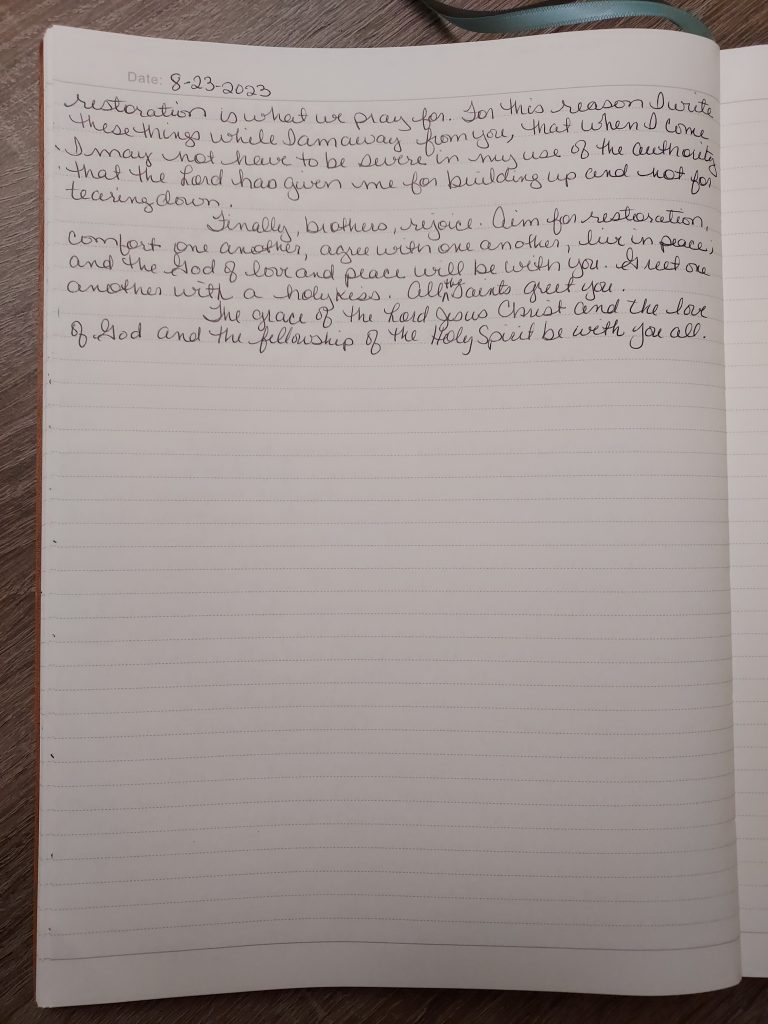 Date: 8-23-2023
restoration is what we pray for. For this reason I write
these things while I am away from you, that when I come
I may not have to be severe in my use of the authority
that the Lord has given me for building up and not for
tearing down.
Finally, brothers, rejoice. Aim for restoration,
comfort one another, agree with one another, live in peace;
and the God of love and peace will be with you. Greet one
another with a holy kiss. All the Saints greet you.
The grace of the Lord Jesus Christ and the love
of God and the fellowship of the Holy Spirit be with you all.